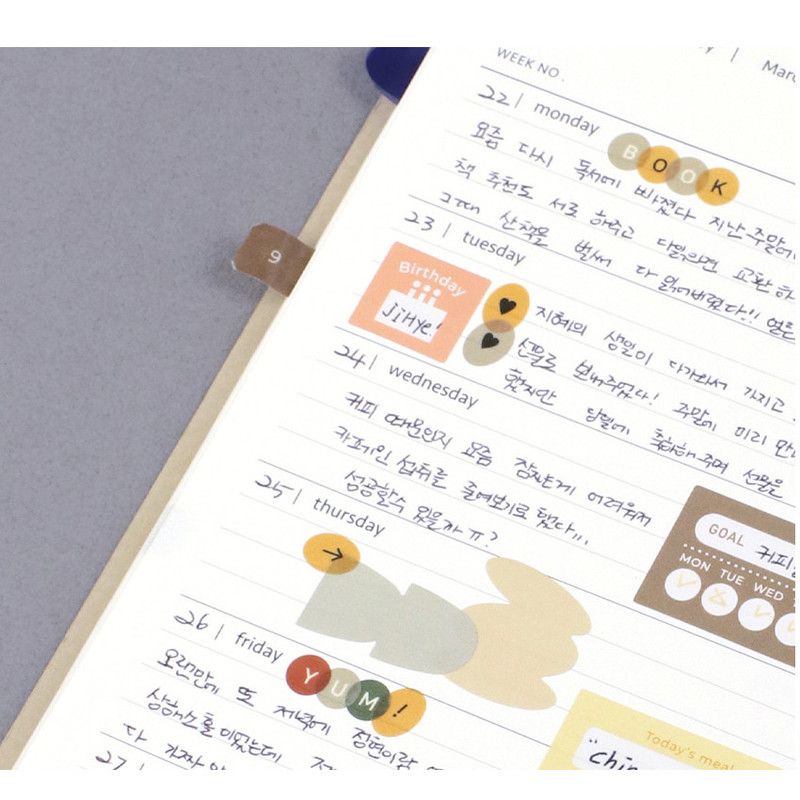 WEEK NO.
22 | monday
BOOK
요즘 다시 독서에 빠졌다 지난 주말에
책 추천도 서로 해주고 다 읽으면 교환하
그때 산책을 벌써 다 읽어버렸다!!
23 | tuesday
9
Birthday
JiHye!
지혜의 생일이 다가와서 가지고
선물로 보내주었다! 주말에 미리 만
했지만 당일에 축하해주며 선물을
24 | wednesday
커피 때문인지 요즘 잠자는게 어려워져
카페인 섭취를 줄여보기로 했다...
성공할수 있을까 ㅠ?
GOAL 커피
MON TUE WED
25 | thursday
→
26 | friday
YUM!
오랜만에 또 저녁에 정현이랑
27
Today's meal
"chi